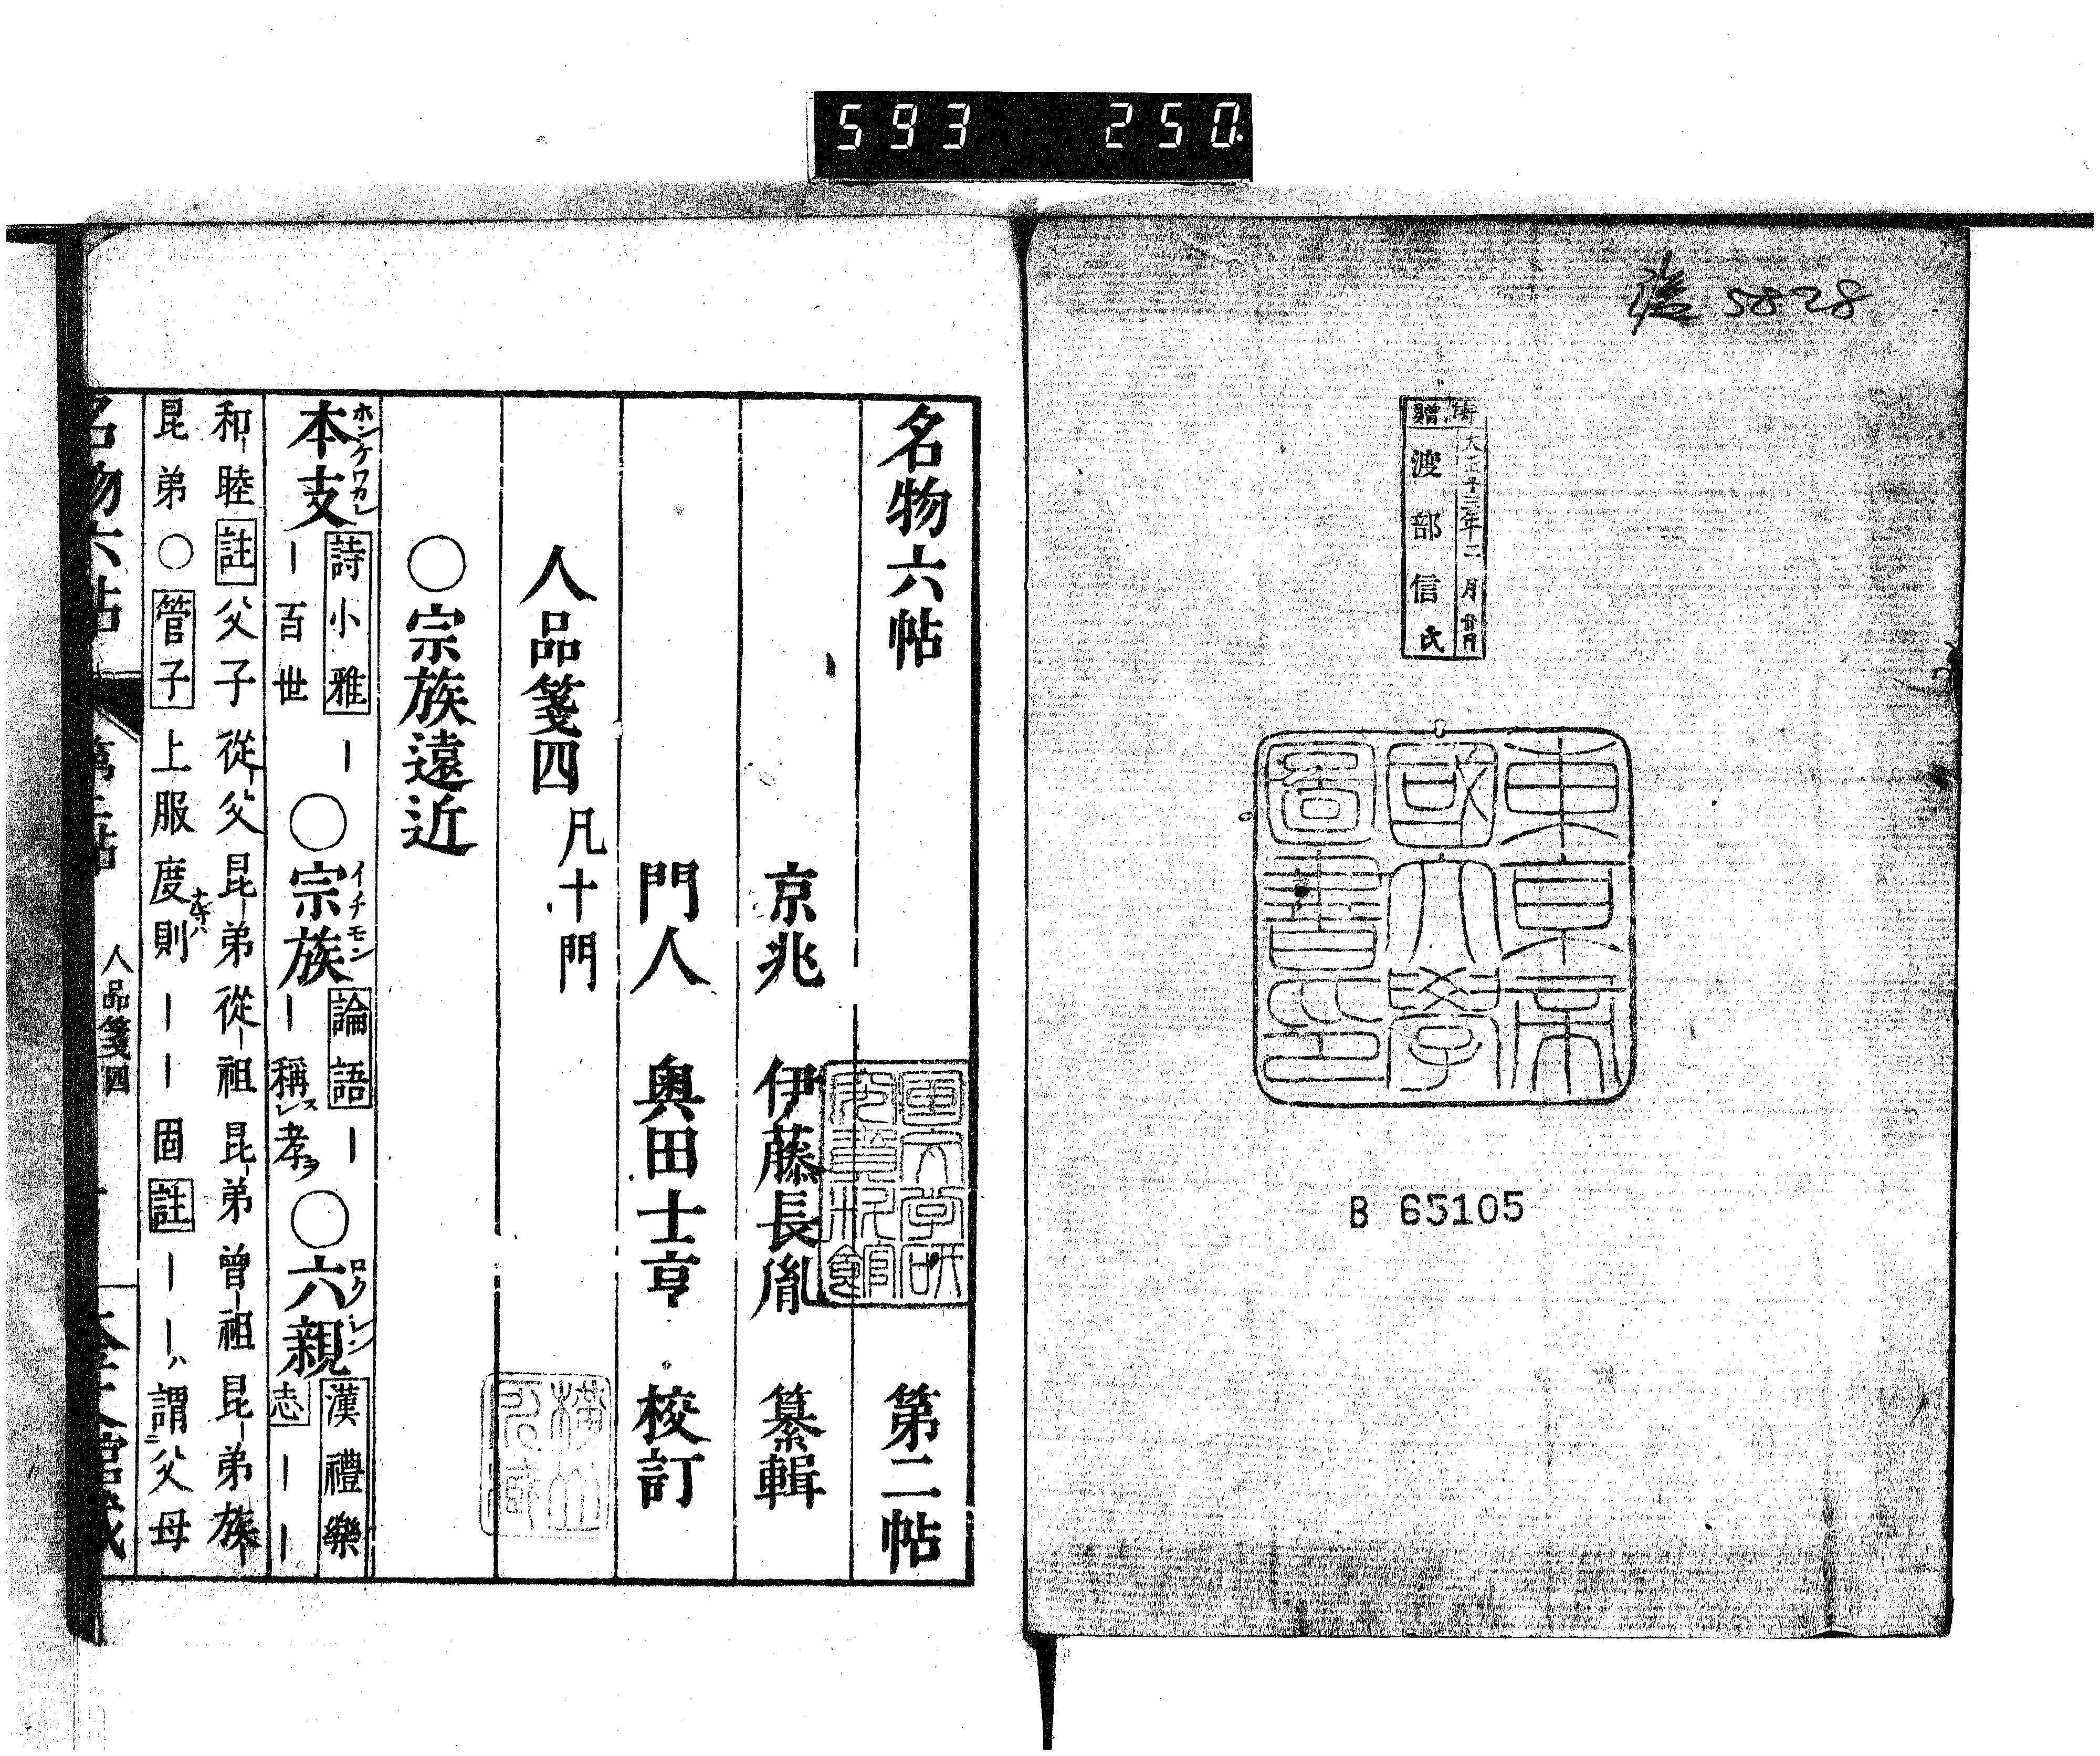 593 250.
5828
贈
大正十三年二月
渡部信氏
東京帝
國大學
圖書印
B 65105
名物六帖 第二帖
京兆 伊藤長胤 纂輯
門人 奥田士亨 校訂
人品箋四 凡十門
○宗族遠近
本支 ホンケワカレ 詩小雅 ー ー百世 ○宗族 イチモン 論語 ー ー稱レス孝ヲ ○六親 ロクシン 漢禮樂志 ー ー
和睦 註 父子從父昆弟從祖昆弟曾祖昆弟族
昆弟 ○管子 上服度則 ー ー 固 註 ー ーハ 謂父母
名物六帖 人品箋四